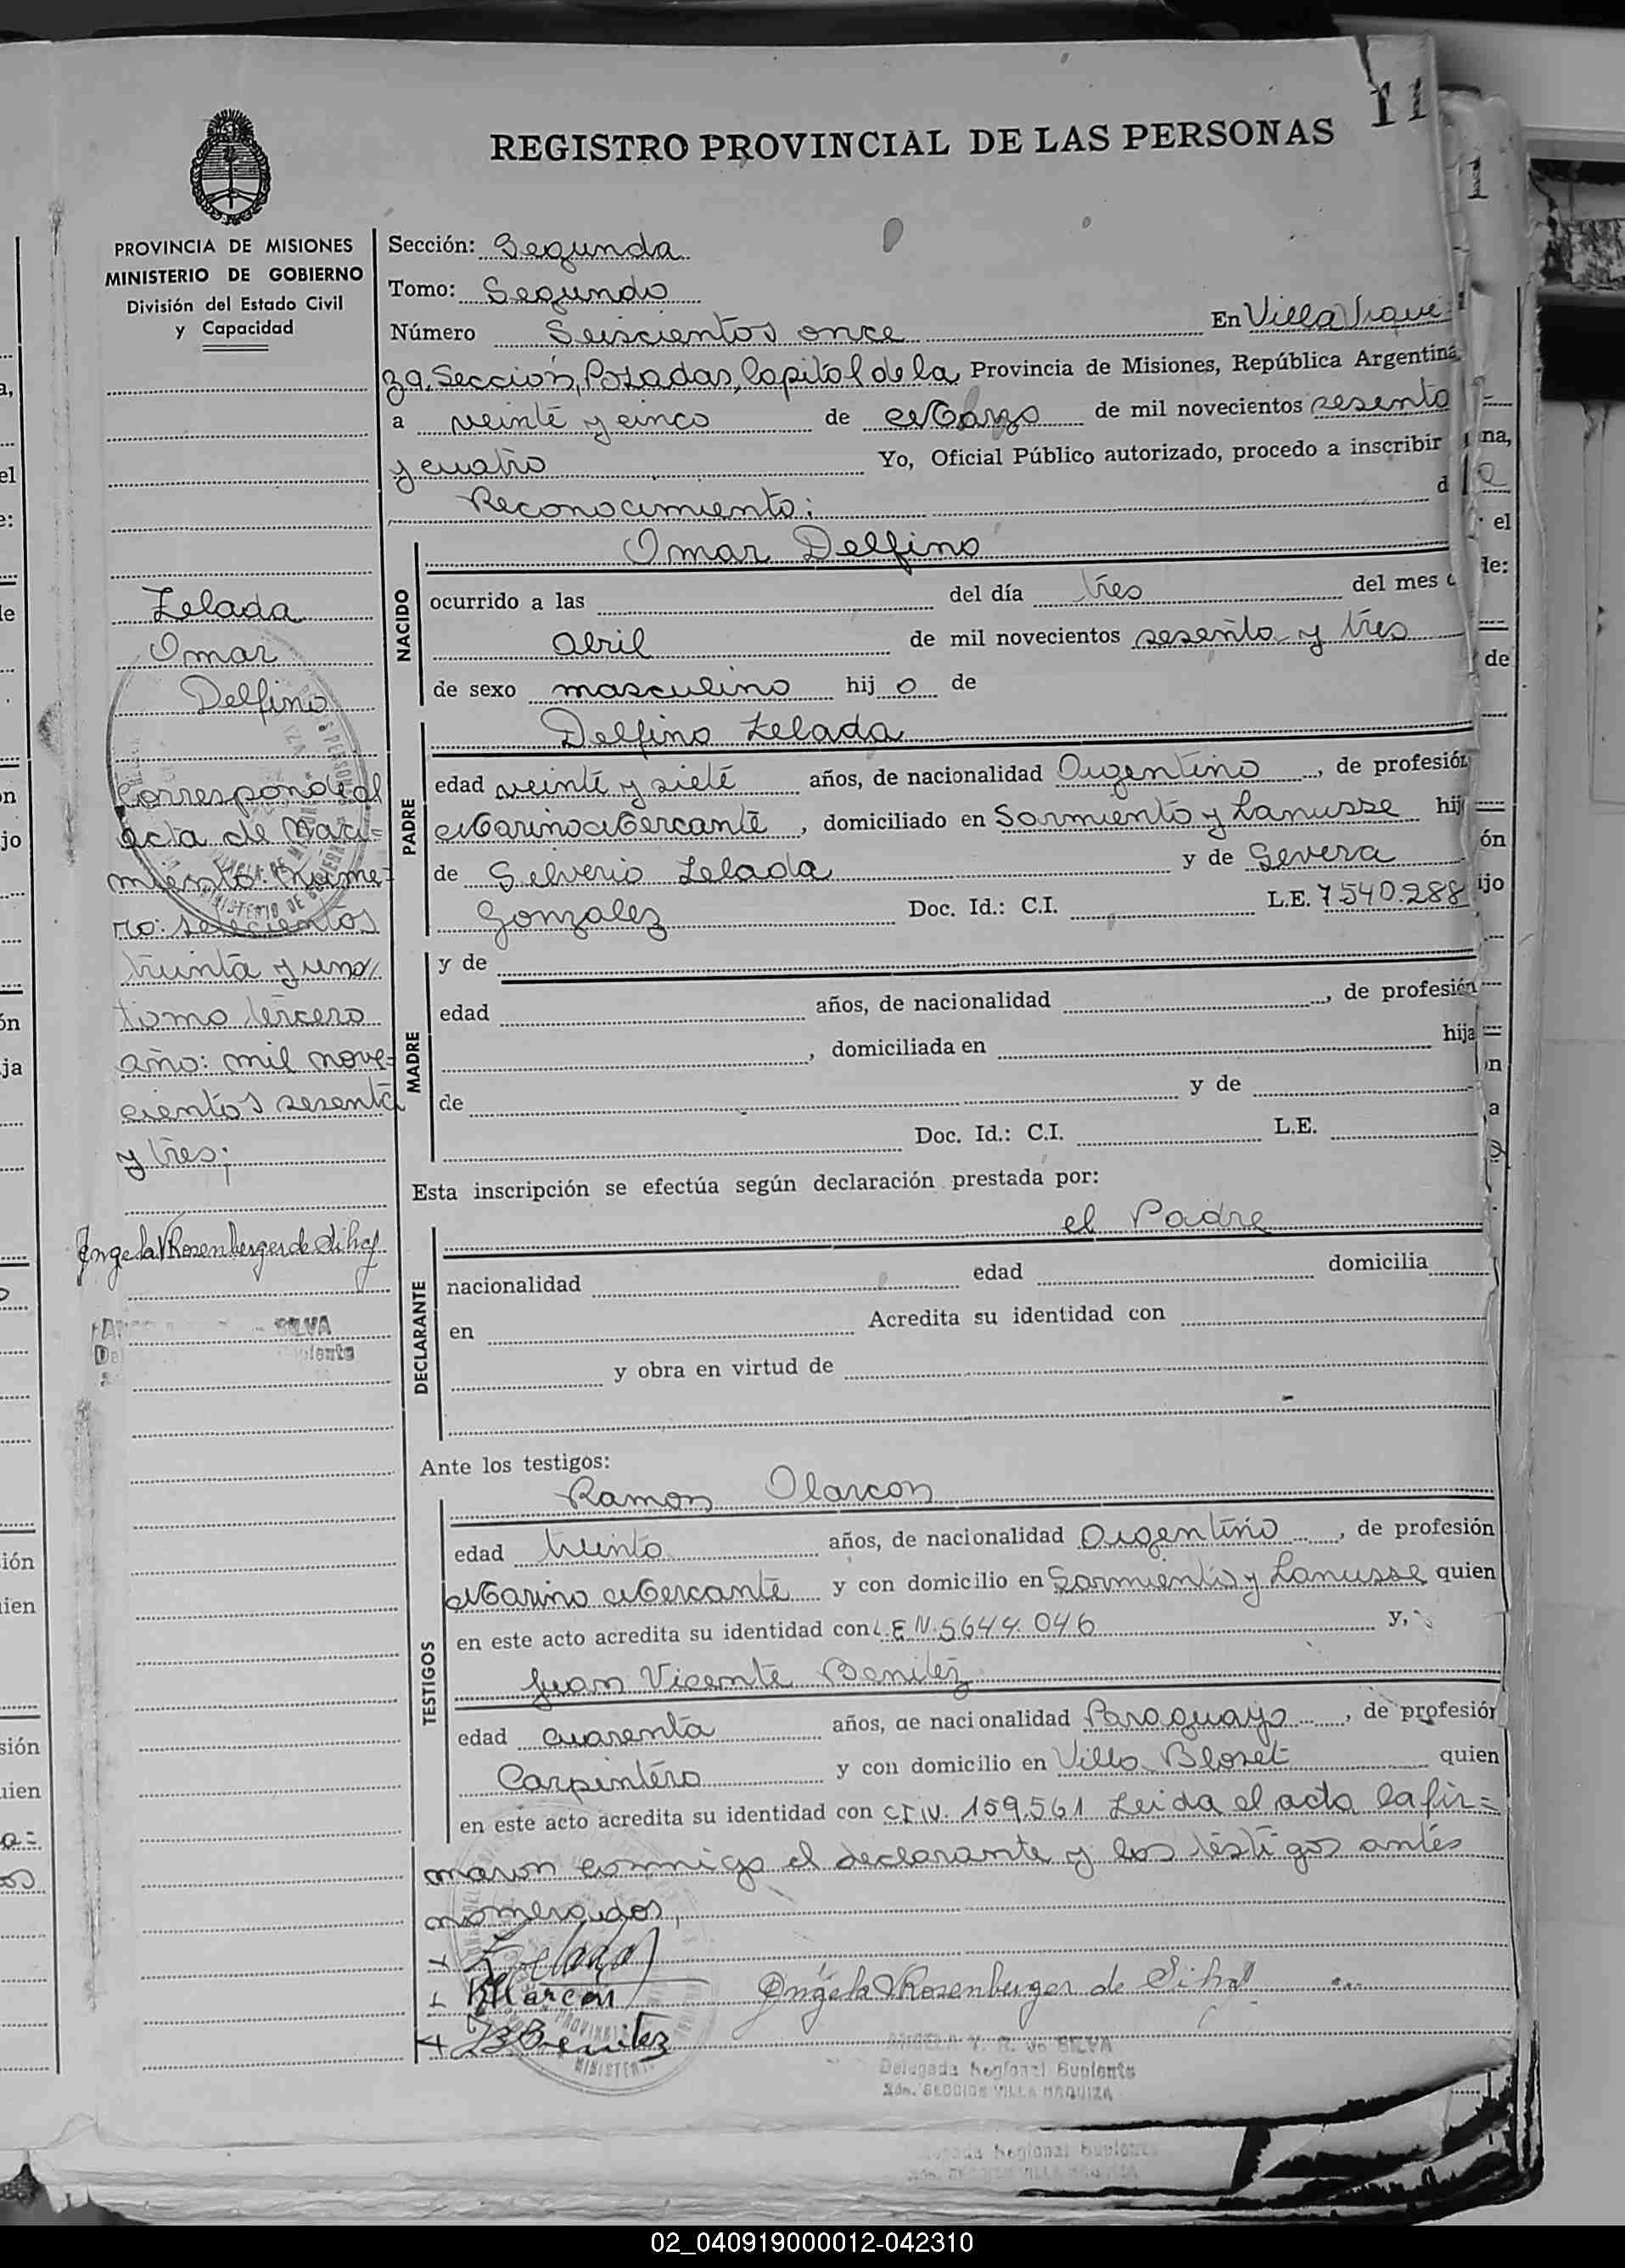 11
REGISTRO PROVINCIAL DE LAS PERSONAS
1
PROVINCIA DE MISIONES
MINISTERIO DE GOBIERNO
División del Estado Civil
y Capacidad
Zelada
Omar
Delfino
Corresponde al
acta de Naci=
miento: Núme=
ro: setecientos
treinta y uno//
tomo tercero
año: mil nove=
cientos sesenta
y tres;
Angela V Rosenberger de Silva
SILVA
Sección: Segunda
Tomo: Segundo
Número Seiscientos once En Villa Urqui
za, Sección, Posadas, Capital de la Provincia de Misiones, República Argentina
a veinte y cinco de Marzo de mil novecientos sesenta
y cuatro Yo, Oficial Público autorizado, procedo a inscribir
Reconocimiento; d
NACIDO
Omar Delfino
ocurrido a las del día tres del mes
Abril de mil novecientos sesenta y tres
de sexo masculino hij o de
PADRE
Delfino Zelada
edad veinte y siete años, de nacionalidad Argentino, de profesión
Marino Mercante, domiciliado en Sarmiento y Lanusse hij
de Silverio Zelada y de Severa
Gonzalez Doc. Id.: C.I. L.E. 7.540.288
MADRE
y de
edad años, de nacionalidad , de profesión
, domiciliada en hija
de y de
Doc. Id.: C.I. L.E.
Esta inscripción se efectúa según declaración prestada por:
DECLARANTE
el Padre
nacionalidad edad domicilia
en Acredita su identidad con
y obra en virtud de
Ante los testigos:
TESTIGOS
Ramon Alarcon
edad treinta años, de nacionalidad Argentino, de profesión
Marino Mercante y con domicilio en Sarmiento y Lanusse quien
en este acto acredita su identidad con L.E.N. 5644.046 y,
Juan Vicente Benitez
edad cuarenta años, de nacionalidad Paraguayo, de profesión
Carpintero y con domicilio en Villa Blosset quien
en este acto acredita su identidad con C.I.N. 159.561 Leida el acta la fir=
maron conmigo el declarante y los testigos antes
nomerados,
Zelada
RAlarcon
Benitez
Angela V Rosenberger de Silva
ANGELA V. R. de SILVA
Delegada Regional Suplente
SECCION VILLA URQUIZA
Regional Suplente
02_040919000012-042310